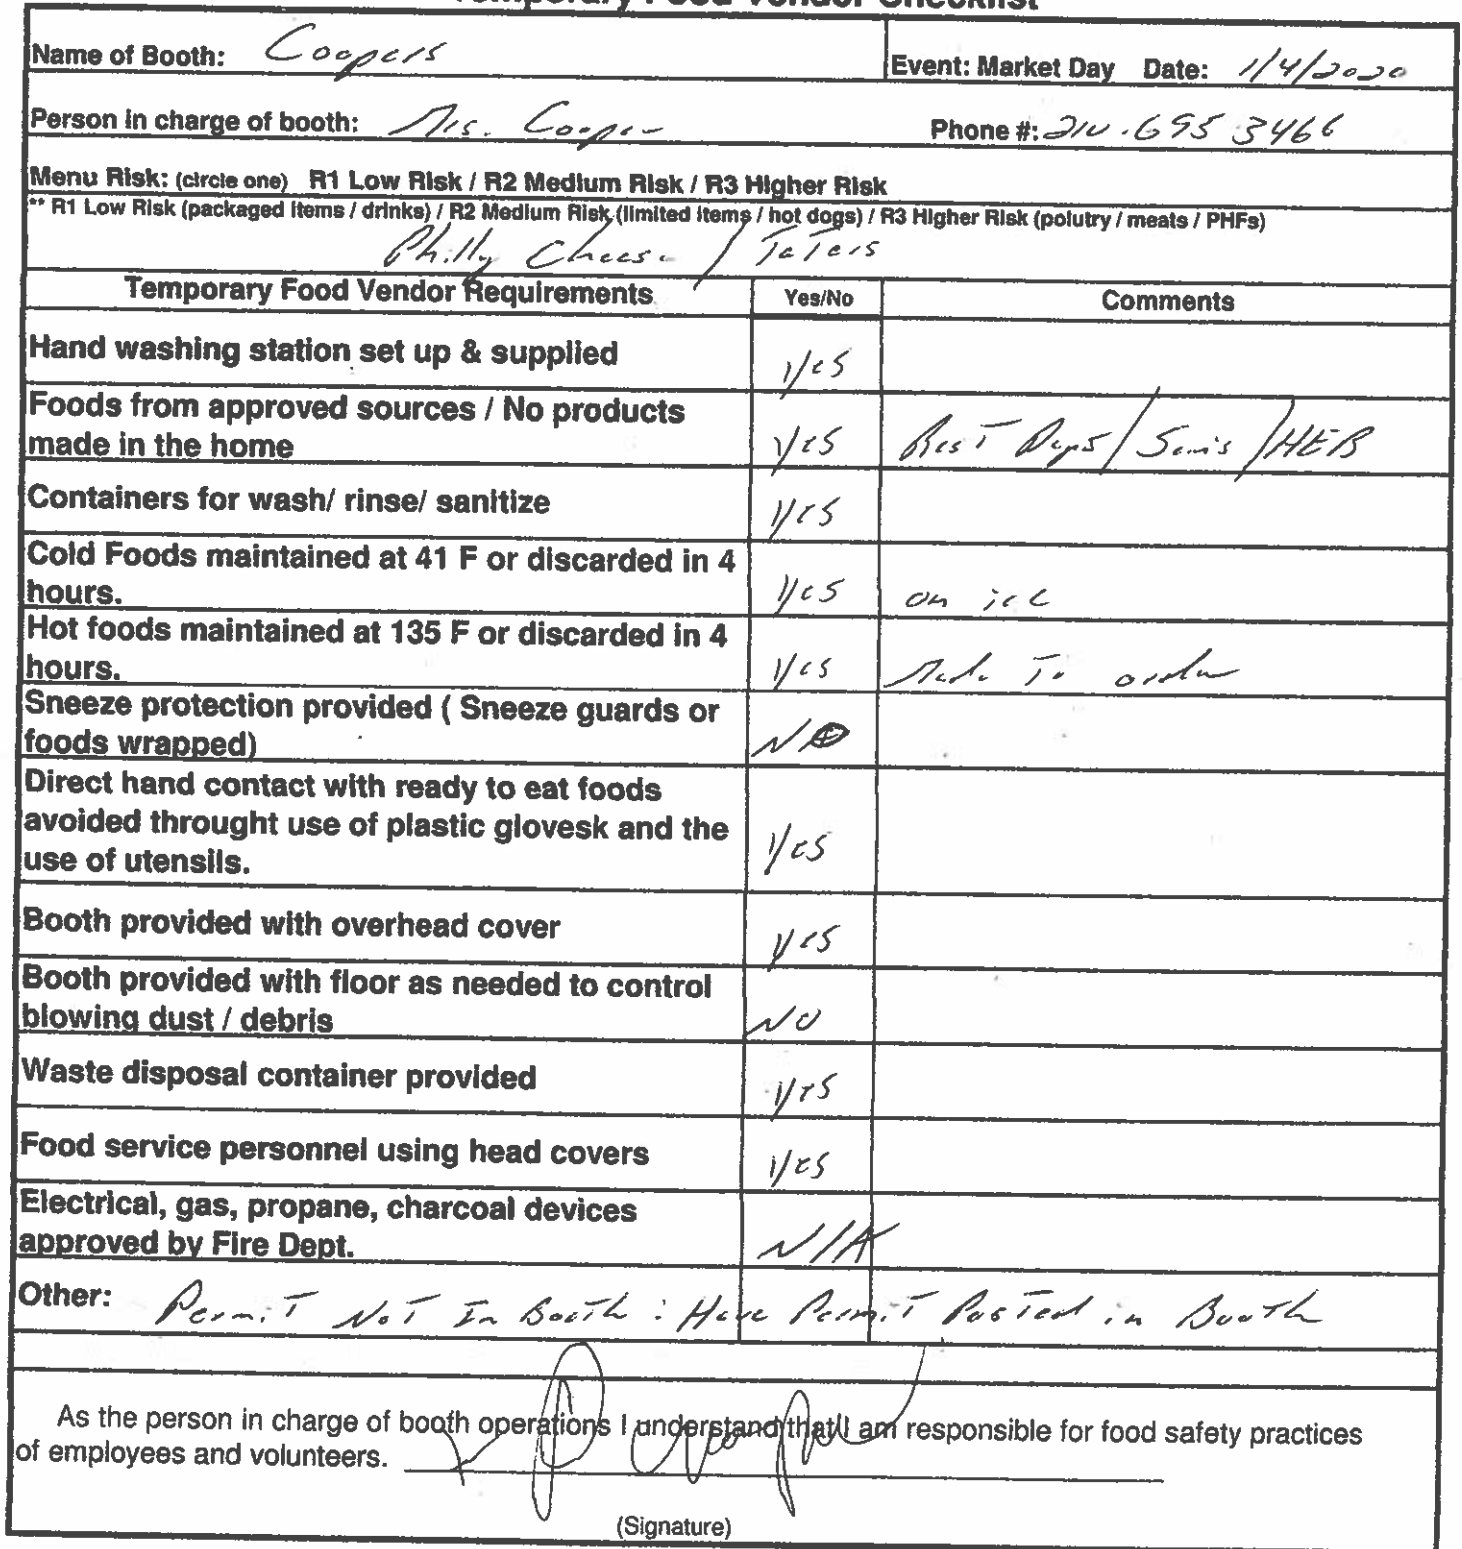 Temporary Food Vendor Checklist
Name of Booth: Coopers
Event: Market Day Date: 1/4/2020
Person in charge of booth: Mrs. Cooper Phone #: 210.695 3466
Menu Risk: (circle one) R1 Low Risk / R2 Medium Risk / R3 Higher Risk
** R1 Low Risk (packaged items / drinks) / R2 Medium Risk (limited items / hot dogs) / R3 Higher Risk (polutry / meats / PHFs)
Philly Cheese / TaTers
Temporary Food Vendor Requirements Yes/No Comments
Hand washing station set up & supplied yes
Foods from approved sources / No products
made in the home yes Rest Depo / Sam's / HEB
Containers for wash/ rinse/ sanitize yes
Cold Foods maintained at 41 F or discarded in 4
hours. yes on ice
Hot foods maintained at 135 F or discarded in 4
hours. yes Made To order
Sneeze protection provided ( Sneeze guards or
foods wrapped) NO
Direct hand contact with ready to eat foods
avoided throught use of plastic glovesk and the
use of utensils. yes
Booth provided with overhead cover yes
Booth provided with floor as needed to control
blowing dust / debris NO
Waste disposal container provided yes
Food service personnel using head covers yes
Electrical, gas, propane, charcoal devices
approved by Fire Dept. N/A
Other: Permit Not In Booth : Have Permit Posted in Booth
As the person in charge of booth operations I understand that I am responsible for food safety practices
of employees and volunteers.
(Signature)